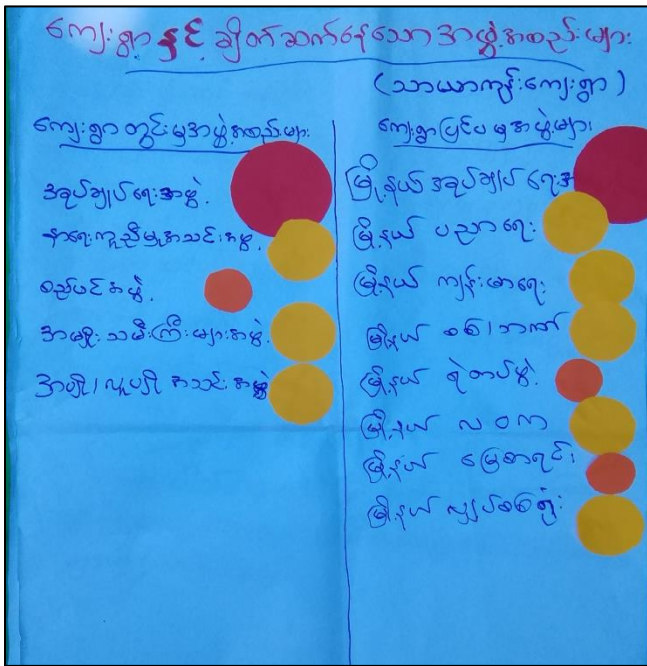 ကျေးရွာ နှင့် ချိတ်ဆက်နေသော အဖွဲ့အစည်းများ
(သာယာကုန်းကျေးရွာ)
ကျေးရွာတွင်းမှအဖွဲ့အစည်းများ
အုပ်ချုပ်ရေးအဖွဲ့
နာရေးကူညီမှုအသင်းအဖွဲ့
စည်ပင်အဖွဲ့
အမျိုးသမီးကြီးများအဖွဲ့
အပျို၊ လူပျို အသင်းအဖွဲ့
ကျေးရွာပြင်ပမှအဖွဲ့များ
မြို့နယ် အုပ်ချုပ်ရေးအ
မြို့နယ် ပညာရေး
မြို့နယ် ကျန်းမာရေး
မြို့နယ် စစ်၊ ဘဏ်
မြို့နယ် ရဲတပ်ဖွဲ့
မြို့နယ် လဝက
မြို့နယ် မြေစာရင်း
မြို့နယ် လျှပ်စစ်ရုံး